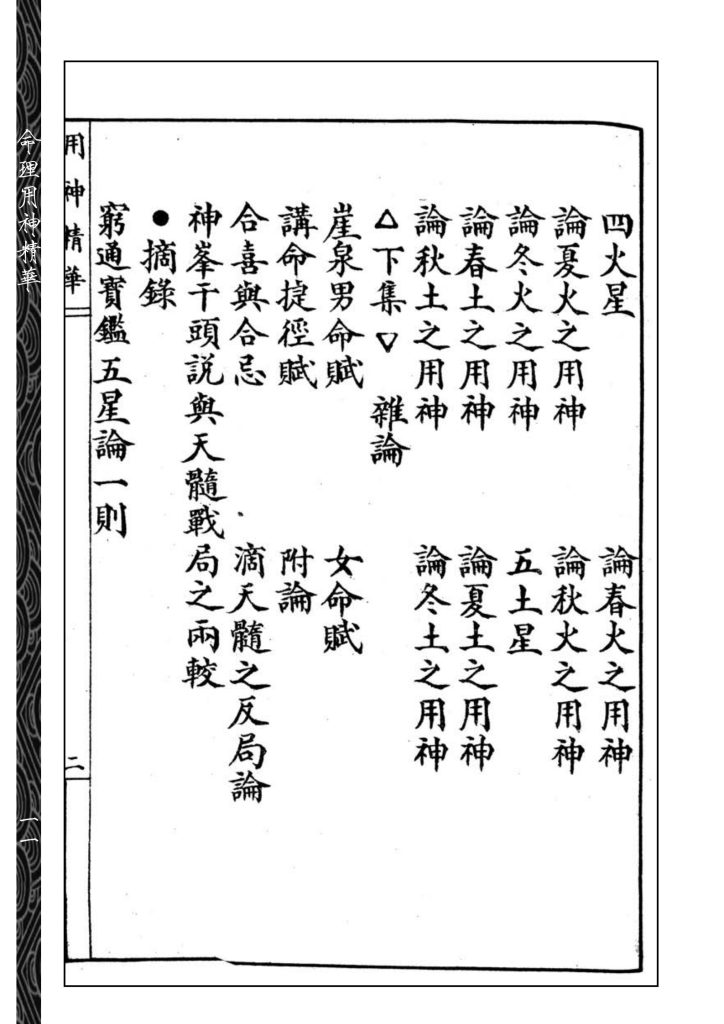 四火星　論春火之用神
論夏火之用神　論秋火之用神
論冬火之用神　五土星
論春土之用神　論夏土之用神
論秋土之用神　論冬土之用神
△下集▽　雜論
崖泉男命賦　女命賦
講命捷徑賦　附論
合喜與合忌　滴天髓之反局論
神峯干頭説與天髓戰局之兩較
●摘錄
窮通寶鑑五星論一則
用神精華
二
命理用神精華
一一